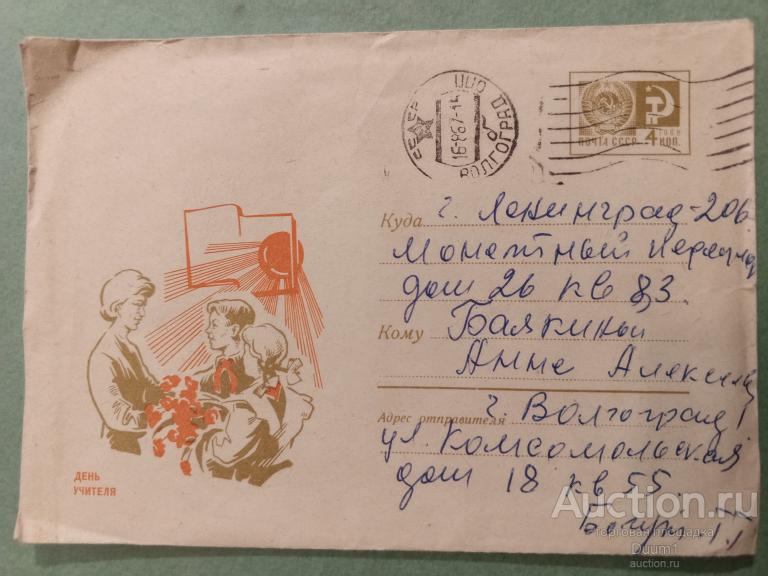 СССР
ВОЛГОГРАД
16-867-14
ПОЧТА СССР
1966
4 КОП.
Куда г. Ленинград-206
Монетный
дом 26 кв 83.
Кому
Анне
Адрес отправителя г. Волгоград
ул. Комсомольская
дом 18 кв 55.
ДЕНЬ
УЧИТЕЛЯ
Auction.ru
Торговая площадка
Duum1
auction.ru